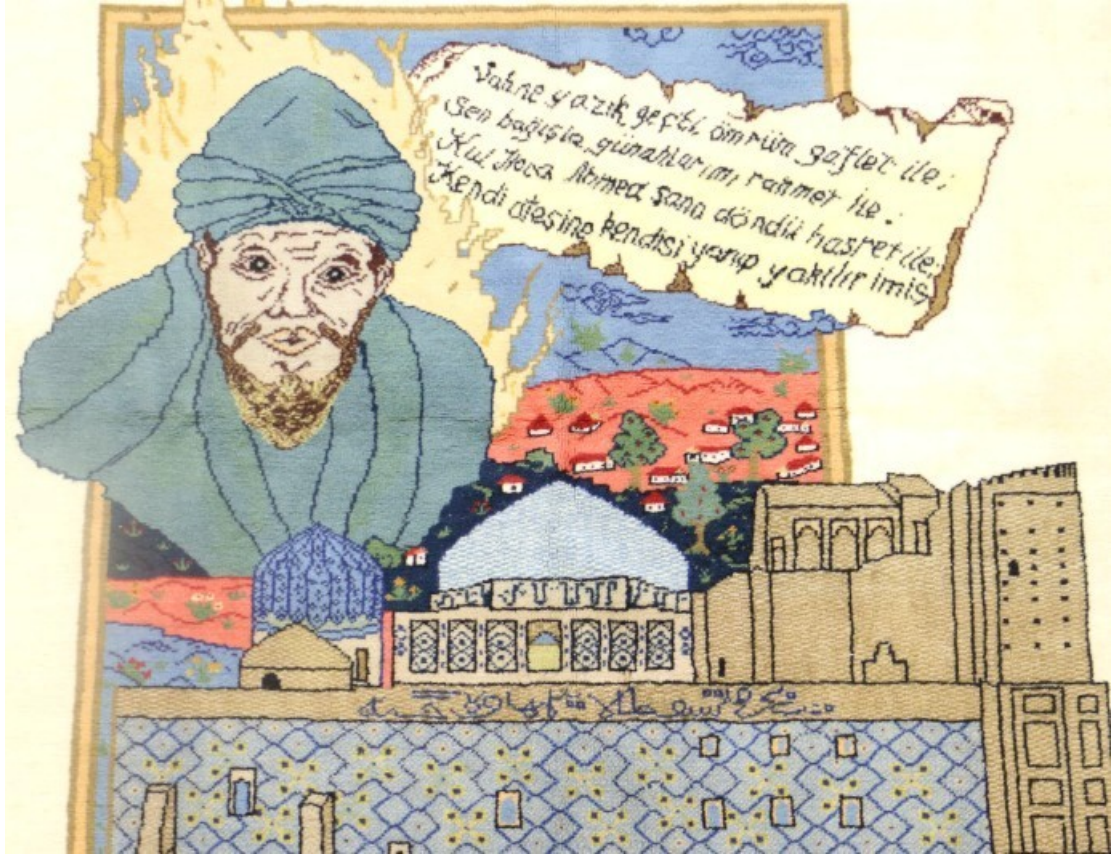 Vahne yazık geçti ömrüm gaflet ile;
Sen bağışla günahlarımı rahmet ile;
Kul Hoca Ahmed sana döndü hasret ile;
Kendi ateşine kendisi yanıp yakılır imiş